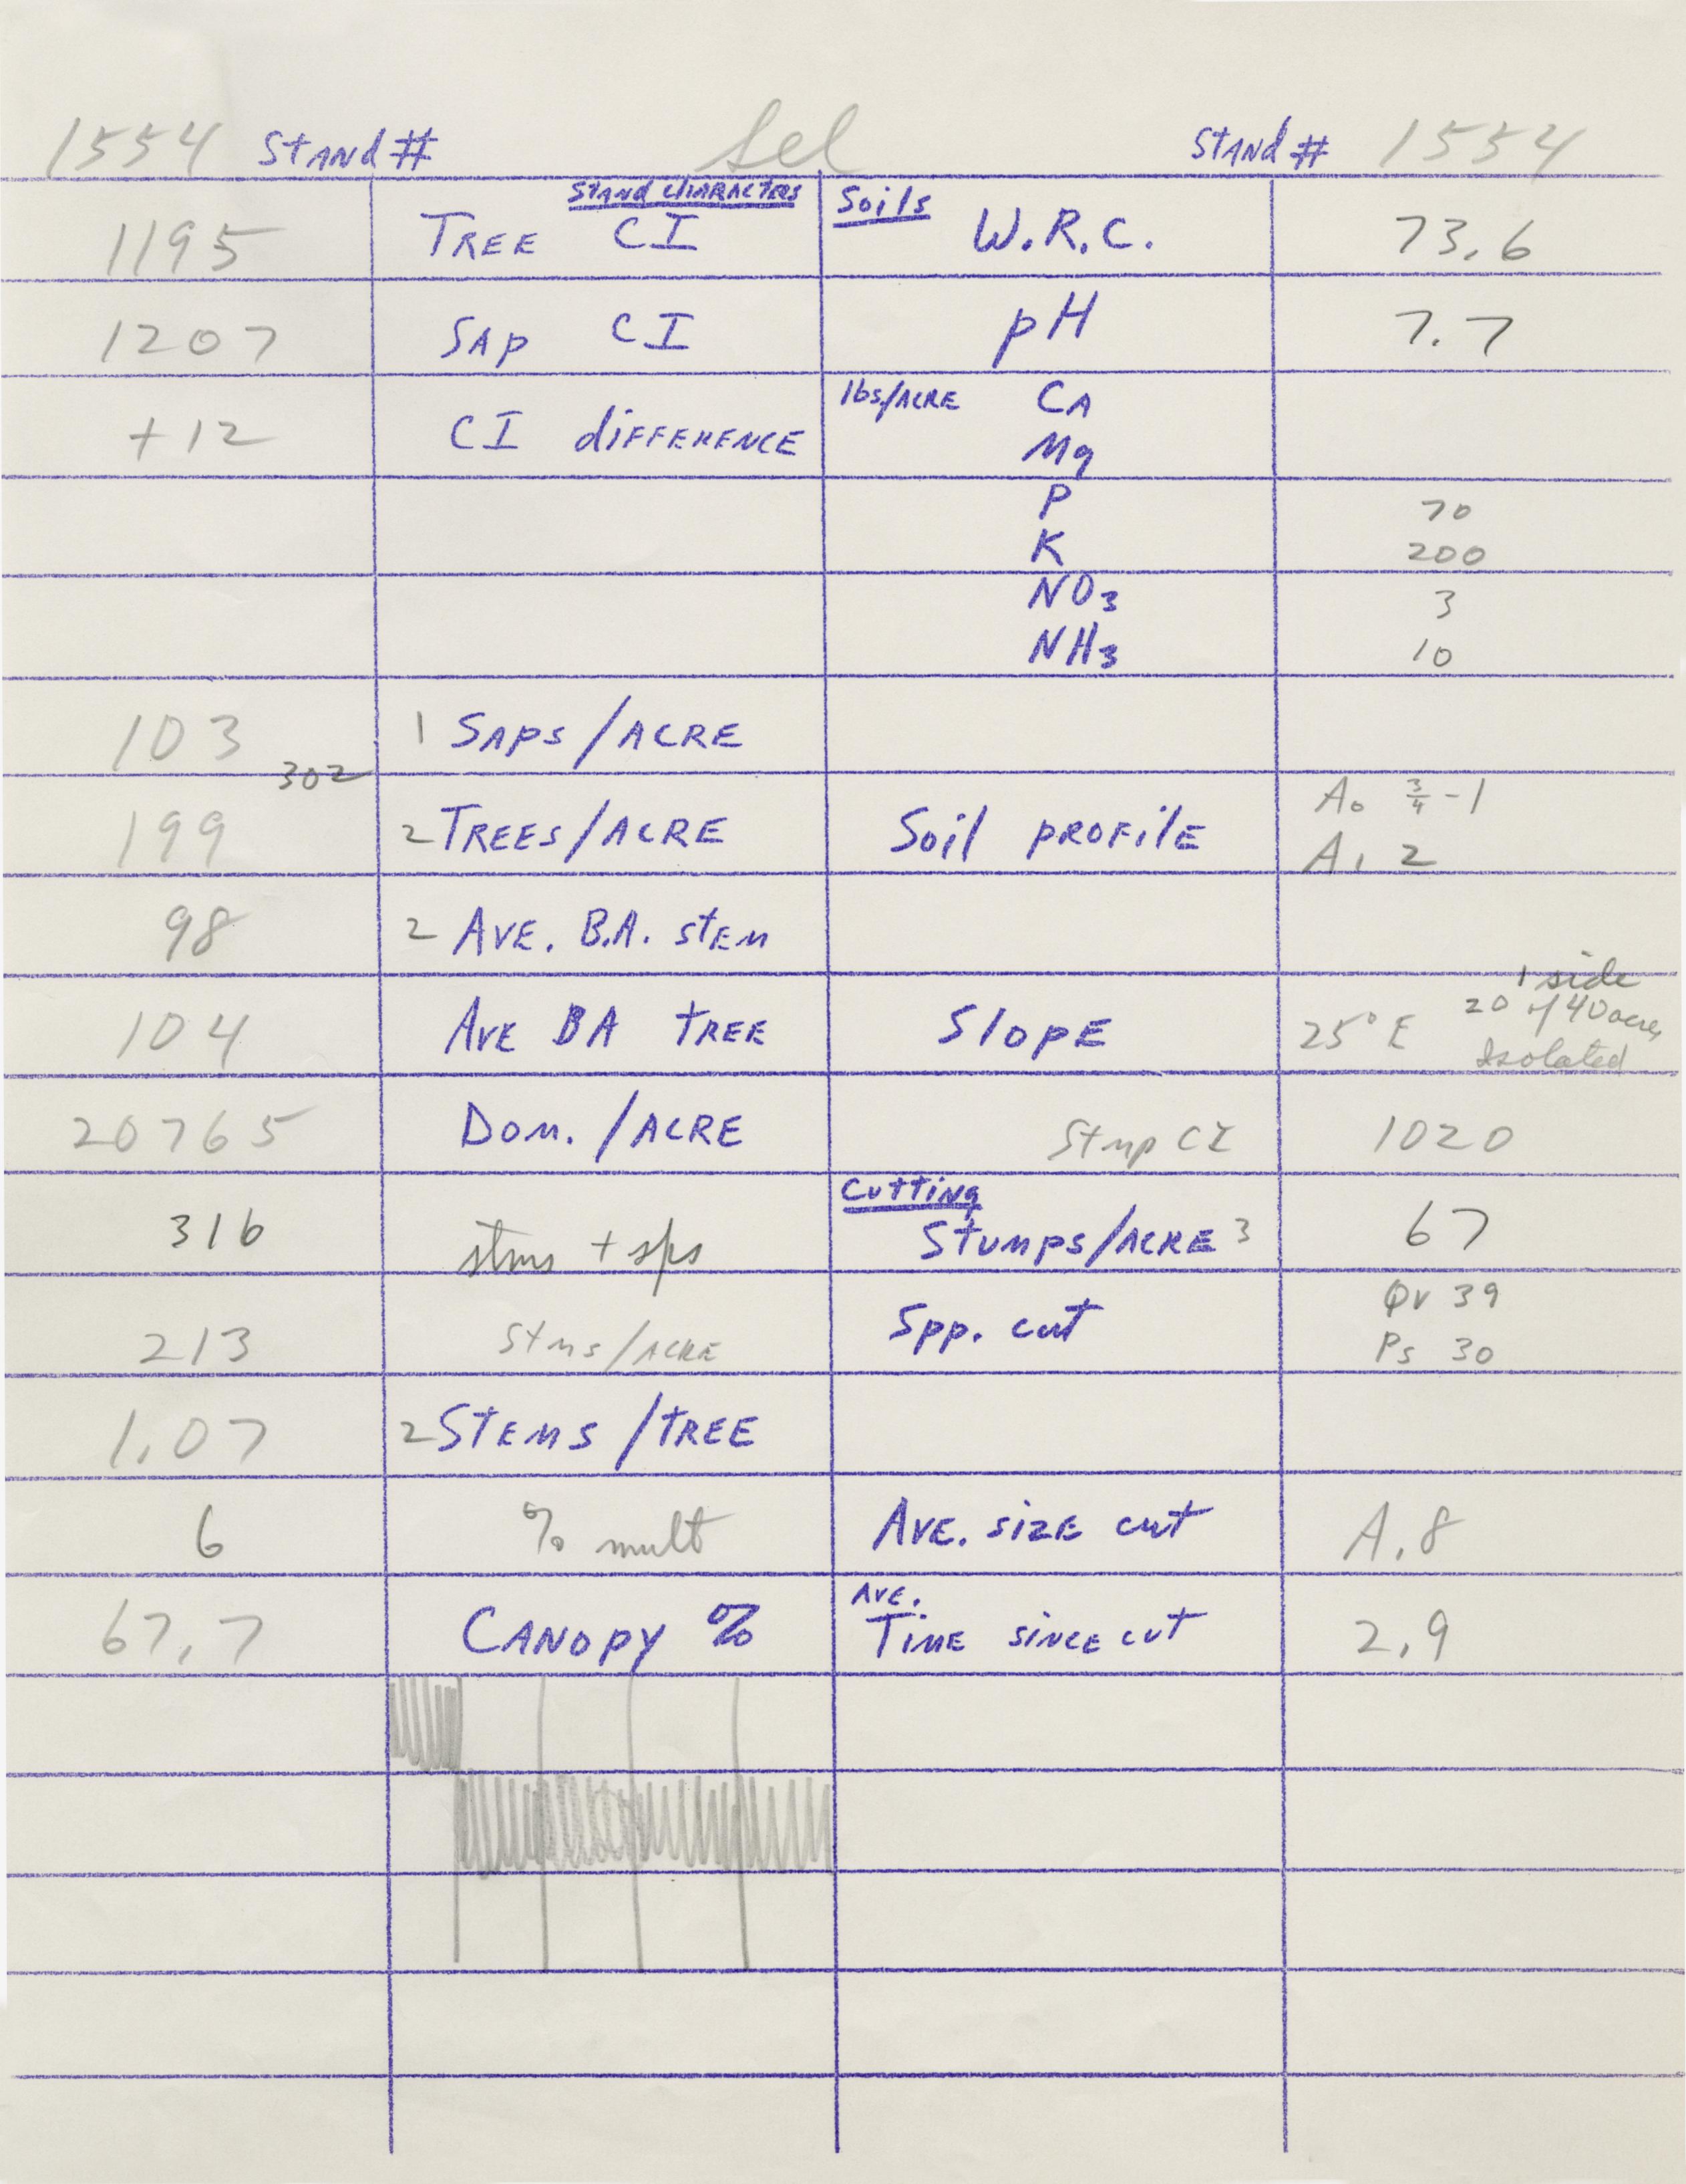 1554 Stand # Sel Stand # 1554
Stand Characters Soils
1195 Tree CI W.R.C. 73.6
1207 Sap CI pH 7.7
+12 CI difference lbs/acre Ca
Mg
P 70
K 200
NO3 3
NH3 10
103 1 Saps/acre
302
199 2 Trees/acre Soil profile A0 3/4 - 1
A1 2
98 2 Ave. B.A. stem
104 Ave BA tree Slope 25° E 1 side
20 of 40 acres
Isolated
20765 Dom./acre Stmp CI 1020
Cutting
316 stms + sps Stumps/acre 3 67
213 Stms/acre Spp. cut Qv 39
Ps 30
1.07 2 Stems/tree
6 % mult Ave. size cut A.8
67.7 Canopy % Ave.
Time since cut 2.9